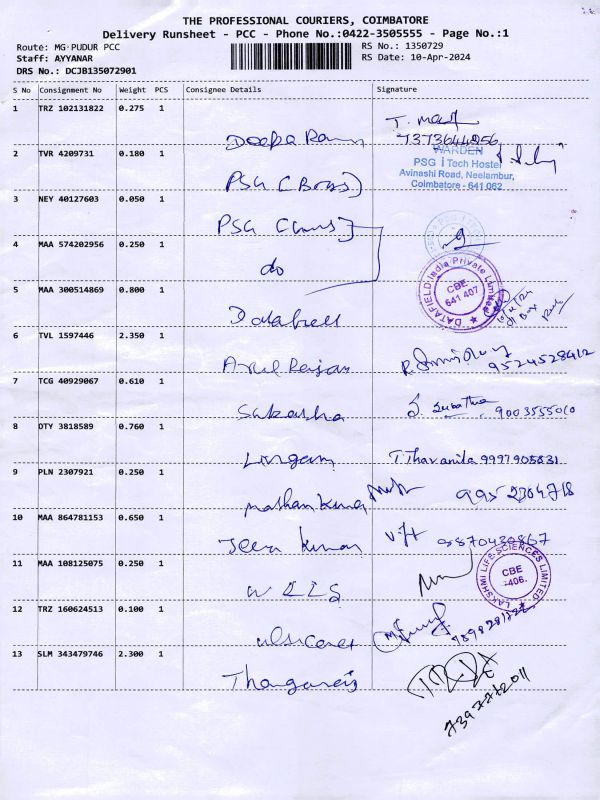 THE PROFESSIONAL COURIERS, COIMBATORE
Delivery Runsheet - PCC - Phone No.:0422-3505555 - Page No.:1
Route: MG PUDUR PCC
RS No.: 1350729
Staff: AYYANAR
RS Date: 10-Apr-2024
DRS No.: DCJB135072901
S No Consignment No Weight PCS Consignee Details Signature
1 TRZ 102131822 0.275 1
Deepa
7373644056
2 TVR 4209731 0.180 1
PSG (Boys)
WARDEN
PSG i Tech Hostel
Avinashi Road, Neelambur,
Coimbatore - 641 062
3 NEY 40127603 0.050 1
PSG
4 MAA 574202956 0.250 1
do
5 MAA 300514869 0.800 1
DATAFIELD India Private Limited
CBE
641 407
6 TVL 1597446 2.350 1
Arul Rajan
9524528412
7 TCG 40929067 0.610 1
9003555010
8 DTY 3818589 0.760 1
Lingam
T Thavanila 9997905831
9 PLN 2307921 0.250 1
9952364718
10 MAA 864781153 0.650 1
Jeeva Kumar
9870430867
11 MAA 108125075 0.250 1
LAKSHMI LIFE SCIENCES LIMITED
CBE
-406.
12 TRZ 160624513 0.100 1
13 SLM 343479746 2.300 1
Thangaraj
7397712011